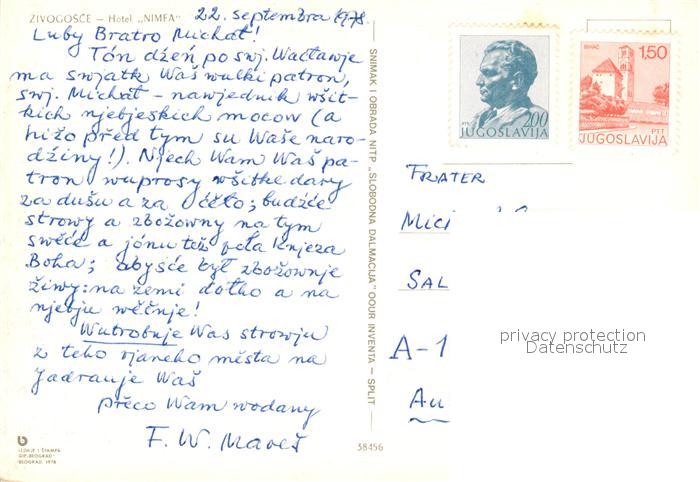 ŽIVOGOŠĆE – Hotel „NIMFA"
22. septembra 1978.
Luby Bratro Michał!
Tón dźeń po swj. Wacławje
ma swjatk Waš wulki patron,
swj. Michał – nawjednik wšit-
kich njebjeskich mocow (a
hižo před tym su Waše naro-
dźiny!). Njech Wam Waš pa-
tron wuprosy wšitke dary
za dušu a za ćěło; budźće
strowy a zbožowny na tym
swěće a jónu tež pola Knjeza
Boha; abyšće był zbožownje
žiwy: na zemi dołho a na
njebju wěčnje!
Wutrobnje Was strowju
z teho rjaneho města na
Jadranje Waš
přeco Wam wodany
F. W. Mareš
IZDAJE I ŠTAMPA
GIP „BEOGRAD"
BEOGRAD, 1978
38456
SNIMAK I OBRADA NITP „SLOBODNA DALMACIJA" OOUR INVENTA – SPLIT
2,00
JUGOSLAVIJA
BIHAĆ
1,50
PTT
JUGOSLAVIJA
FRATER
MICI
SAL
A-1
AU
privacy protection
Datenschutz